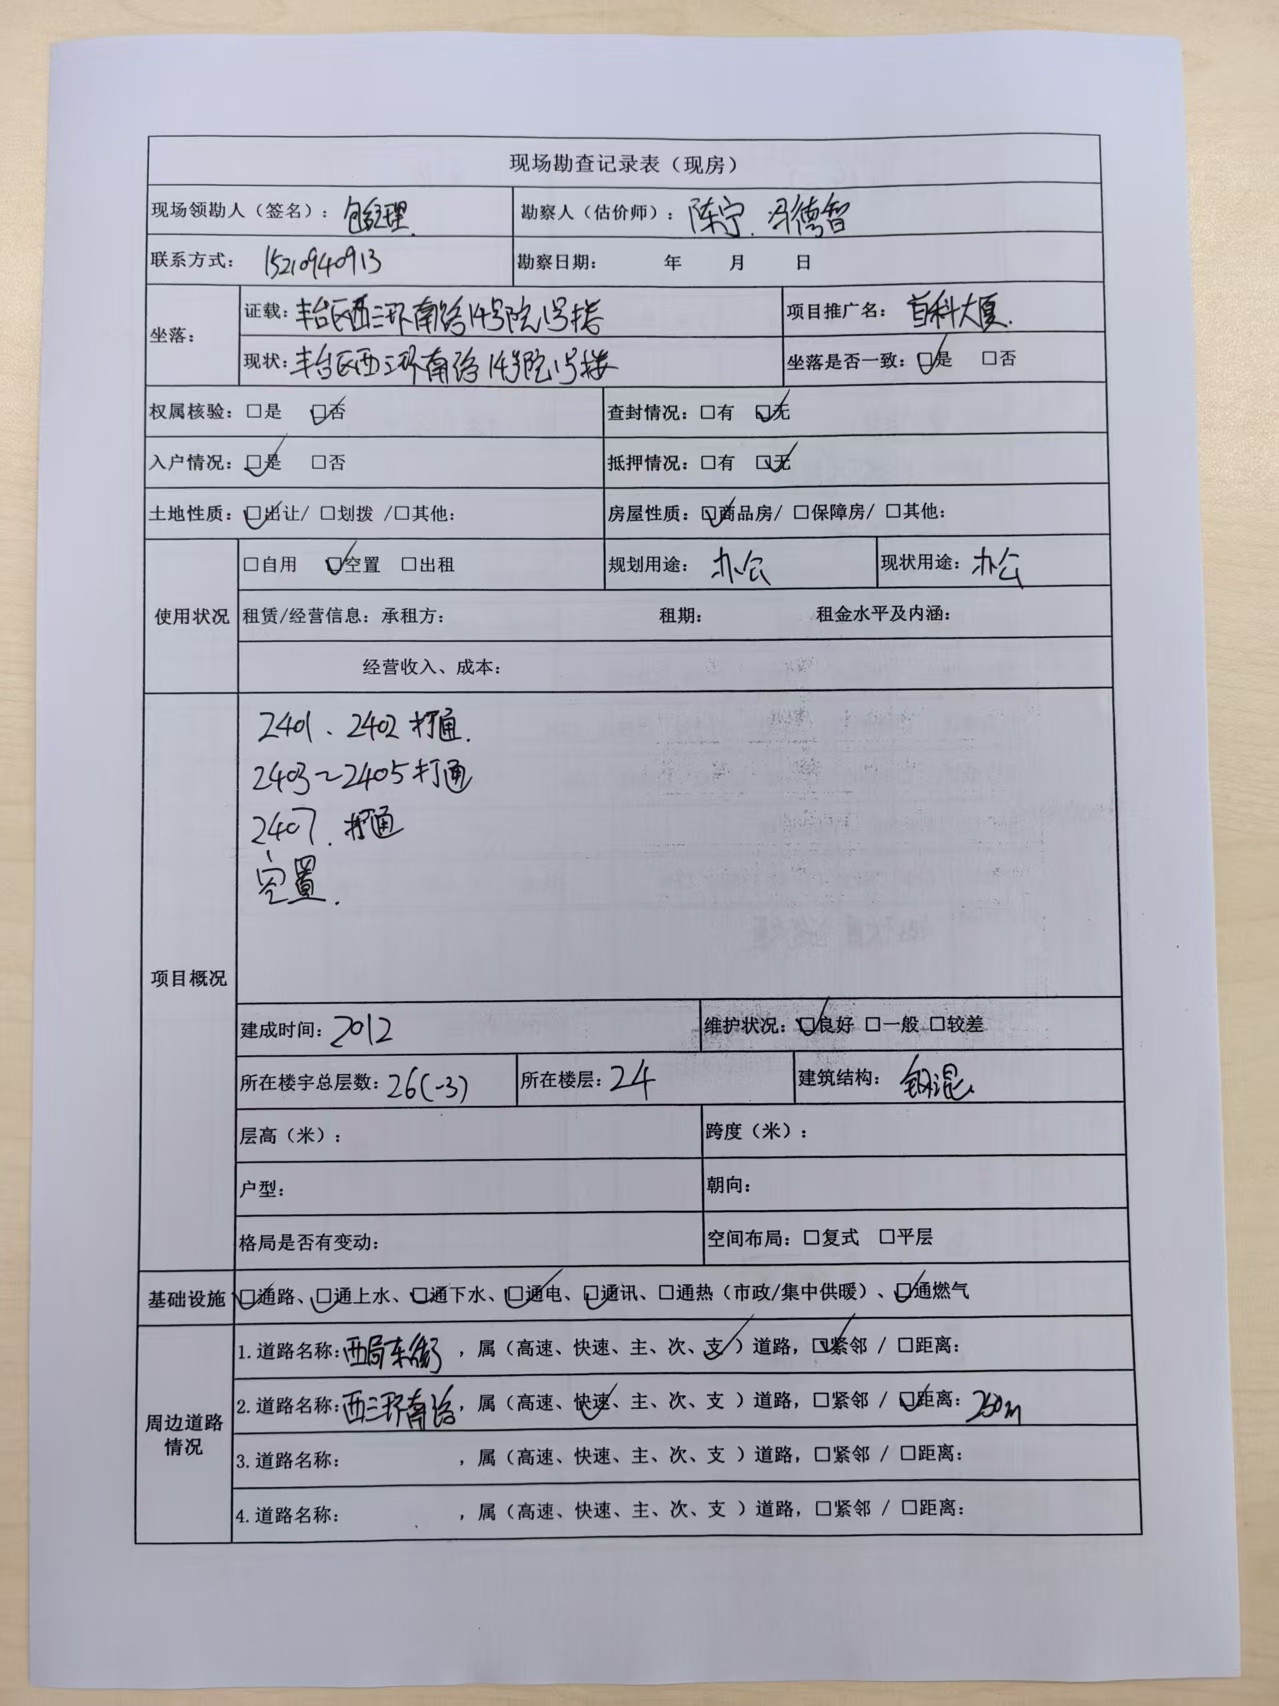 现场勘查记录表（现房）
现场领勘人（签名）：包经理 勘察人（估价师）：陈宁、冯德智
联系方式：15210940913 勘察日期： 年 月 日
坐落： 证载：丰台区西三环南路14号院1号楼 项目推广名：首科大厦
现状：丰台区西三环南路14号院1号楼 坐落是否一致：☑是 □否
权属核验：□是 ☑否 查封情况：□有 ☑无
入户情况：☑是 □否 抵押情况：□有 ☑无
土地性质：☑出让/ □划拨 /□其他： 房屋性质：☑商品房/ □保障房/ □其他：
使用状况 □自用 ☑空置 □出租 规划用途：办公 现状用途：办公
租赁/经营信息：承租方： 租期： 租金水平及内涵：
经营收入、成本：
项目概况
2401、2402打通.
2403~2405打通
2407.打通
空置.
建成时间：2012 维护状况：☑良好 □一般 □较差
所在楼宇总层数：26(-3) 所在楼层：24 建筑结构：钢混
层高（米）： 跨度（米）：
户型： 朝向：
格局是否有变动： 空间布局：□复式 □平层
基础设施 ☑通路、☑通上水、☑通下水、☑通电、☑通讯、□通热（市政/集中供暖）、☑通燃气
周边道路情况
1.道路名称：西局东街，属（高速、快速、主、次、支✓）道路，☑紧邻 / □距离：
2.道路名称：西三环南路，属（高速、快速✓、主、次、支 ）道路，□紧邻 / ☑距离：250m
3.道路名称： ，属（高速、快速、主、次、支 ）道路，□紧邻 / □距离：
4.道路名称： ，属（高速、快速、主、次、支 ）道路，□紧邻 / □距离：